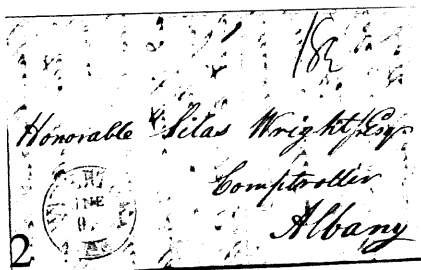 18¾
Honorable Silas Wright Esqr
Comptroller
Albany
2